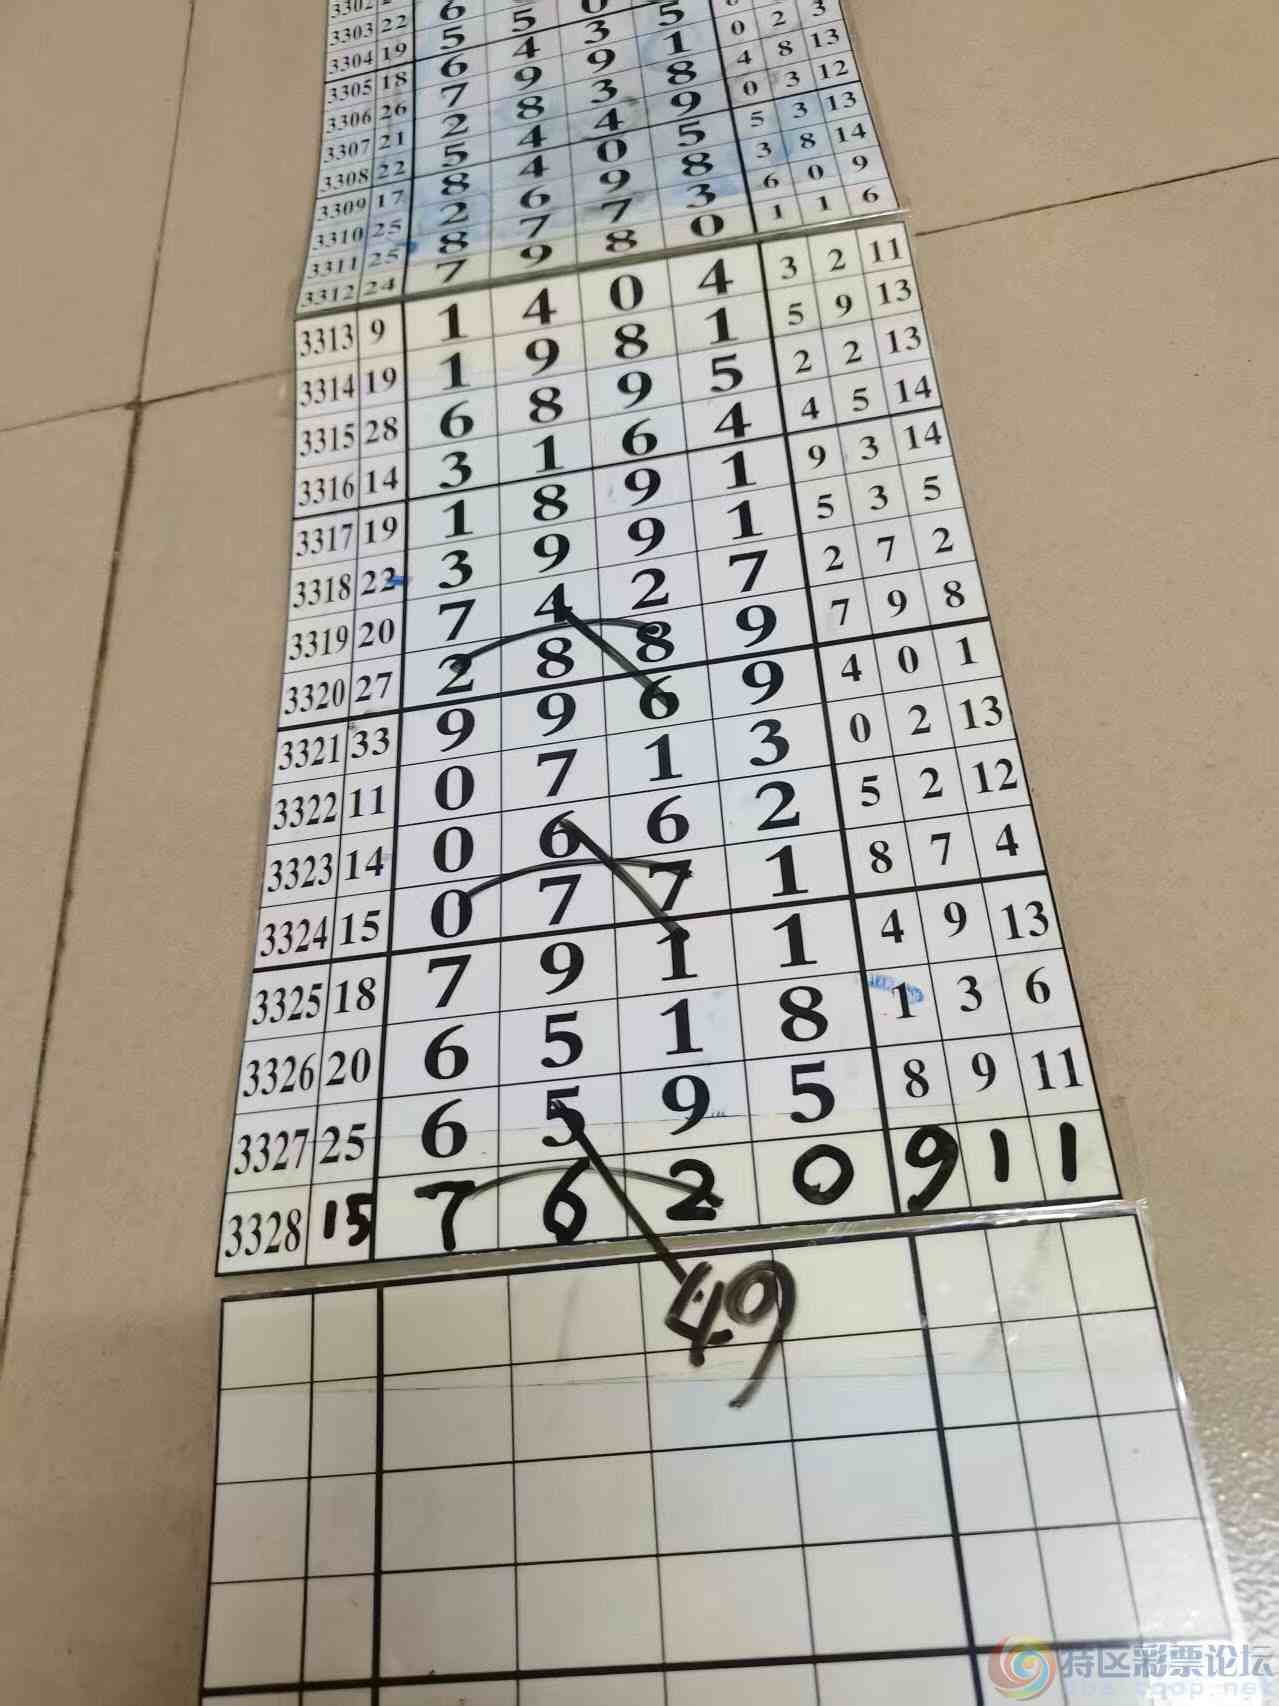 3302
3303 22 6
3304 19 5 5 0
3305 18 6 4 3 5
3306 26 7 9 9 1 0 2 3
3307 21 2 8 3 8 4 8 13
3308 22 5 4 4 9 0 3 12
3309 17 8 4 0 5 5 3 13
3310 25 2 6 9 8 3 8 14
3311 25 8 7 7 3 6 0 9
3312 24 7 9 8 0 1 1 6
3313 9 1 4 0 4 3 2 11
3314 19 1 9 8 1 5 9 13
3315 28 6 8 9 5 2 2 13
3316 14 3 1 6 4 4 5 14
3317 19 1 8 9 1 9 3 14
3318 22 3 9 9 1 5 3 5
3319 20 7 4 2 7 2 7 2
3320 27 2 8 8 9 7 9 8
3321 33 9 9 6 9 4 0 1
3322 11 0 7 1 3 0 2 13
3323 14 0 6 6 2 5 2 12
3324 15 0 7 7 1 8 7 4
3325 18 7 9 1 1 4 9 13
3326 20 6 5 1 8 1 3 6
3327 25 6 5 9 5 8 9 11
3328 15 7 6 2 0 9 1 1
49
特区彩票论坛